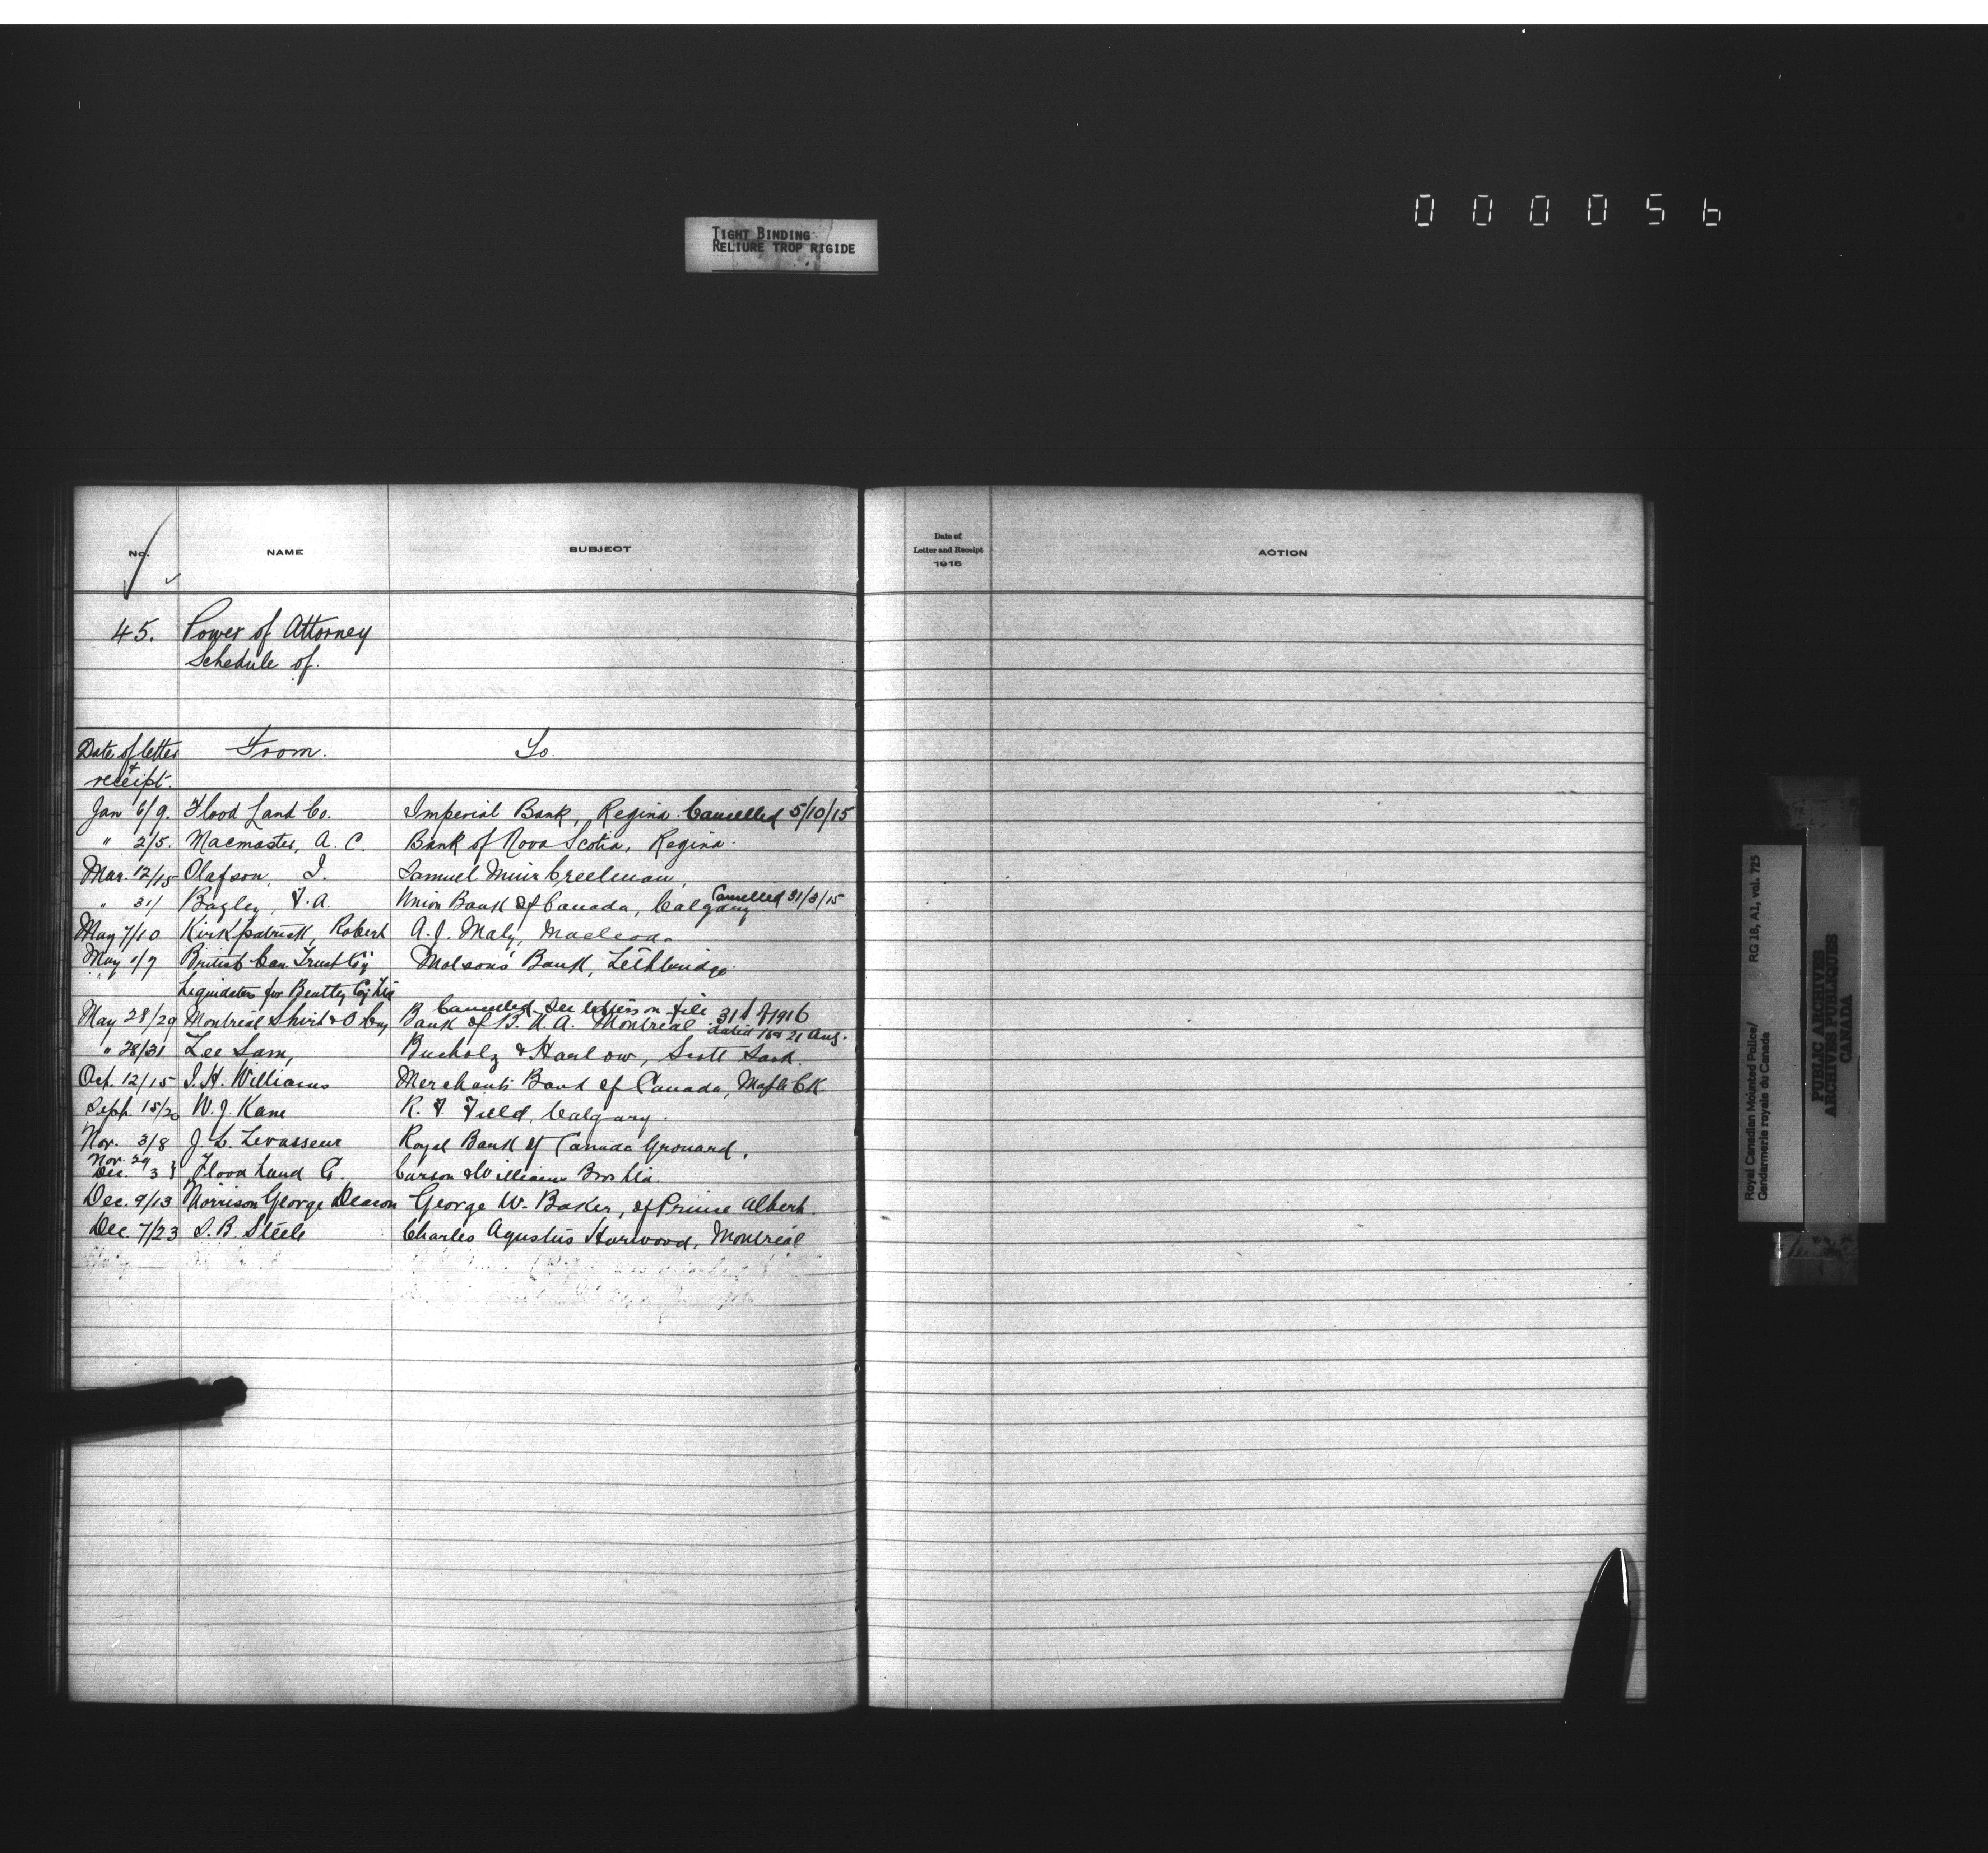 000056
TIGHT BINDING
RELIURE TROP RIGIDE
No. NAME SUBJECT
Date of
Letter and Receipt
1915
ACTION
45. Power of Attorney
Schedule of.
Date of letter From. To.
+
receipt.
Jan 6/9. Flood Land Co. Imperial Bank, Regina. Cancelled 5/10/15
" 2/5. Macmaster, A. C. Bank of Nova Scotia, Regina.
Mar. 12/15 Olafson, I. Samuel Muir Creelman,
" 31/ Bagley, F. A. Union Bank of Canada, Calgary Cancelled 31/3/15
May 7/10 Kirkpatrick, Robert A. J. Maly, Macleod.
May 1/7 British Can. Trust Coy Molsons' Bank, Lethbridge.
Liquidators for Bentley Coy Ltd
Cancelled. See letters on file
May 28/29 Montreal Shirt & O Coy Bank of B. N. A. Montreal
dated 16 & 21 Aug.
" 28/31 Lee Sam, Bucholz & Harlow, Scott Sask.
Oct. 12/15 I. H. Williams Merchants Bank of Canada, Maple CK.
Sept. 15/20 W. J. Kane R. F. Field, Calgary.
Nov. 3/8 J. L. Levasseur Royal Bank of Canada Grouard.
Nov. 29
Dec. 3 } Flood Land Co. Carson & Williams Bros Ltd.
Dec. 9/13 Morrison George Deacon George W. Baker, of Prince Albert.
Dec. 7/23 S. B. Steele Charles Agustus Harwood, Montreal
Royal Canadian Mounted Police/ RG 18, A1, vol. 725
Gendarmerie royale du Canada
PUBLIC ARCHIVES
ARCHIVES PUBLIQUES
CANADA